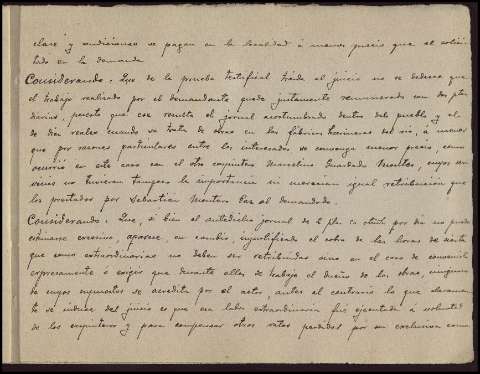 clase y condiciones se pagan en la localidad á menos precio que el solici-
tado en la demanda
Considerando: Que de la prueba testifical traida al juicio no se deduce que
el trabajo realizado por el demandante quede justamente remunerado con dos ptas
diarias, puesto que ese resulta el jornal acostumbrado dentro del pueblo y el
de diez reales cuando se trata de obras en las fábricas harineras del rio, á menos
que por razones particulares entre los interesados se convenga menor precio, como
ocurrió en este caso con el otro carpintero Marcelino Guardado Montes, cuyos ser-
vicios no tuvieron tampoco la importancia ni merecian igual retribución que
los prestados por Sebastian Montero Paz al demandado.
Considerando: Que, si bien el antedicho jornal de 2 ptas por dia no puede
estimarse excesivo, aparece, en cambio, injustificado el cobro de las horas de siesta
que como extraordinarias no deben ser retribuidas sino en el caso de convenirlo
expresamente ó exigir que durante ellas se trabaje el dueño de las obras, ninguno
de cuyos supuestos se acredita por el actor, antes al contrario lo que claramen-
te se induce del juicio es que esa labor extraordinaria fué ejecutada á voluntad
de los carpinteros y para compensar otros ratos perdidos por su exclusiva conve